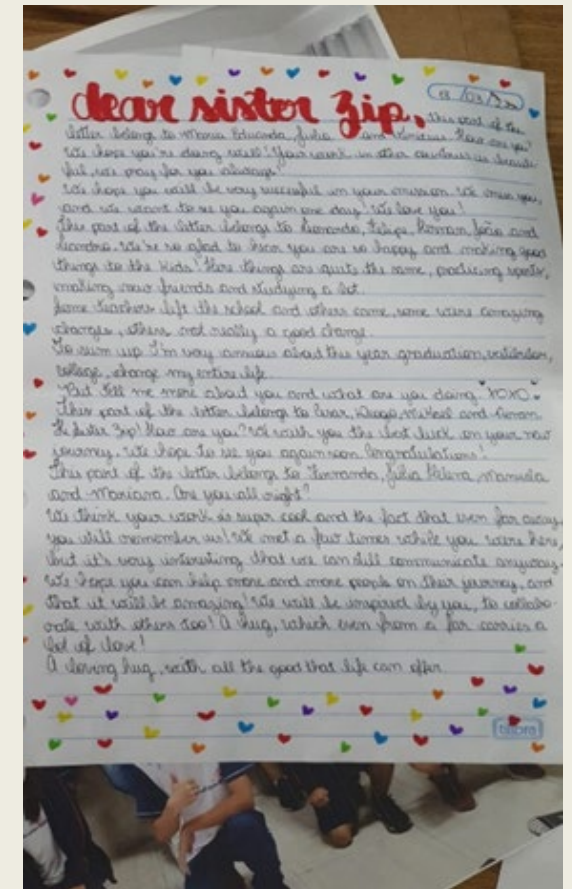 dear sister Zip,
18/03/
this part of the
letter belongs to Maria Eduarda, Julia and Vinicius. How are you?
We hope you're doing well! Your work in other countries is beauti-
ful, we pray for you always!
We hope you will be very successful in your mission. We miss you,
and we want to see you again one day! We love you!
This part of the letter belongs to Leonardo, Felipe, Renan, João and
Leandro. We're so glad to hear you are so happy and making good
things to the Kids! Here things are quite the same, practicing sports,
making new friends and studying a lot.
Some teachers left the school and others came, some were amazing
changes, others not really a good change.
To sum up I'm very anxious about this year graduation,
college, change my entire life.
But tell me more about you and what are you doing. XOXO
This part of the letter belongs to and
Sister Zip! How are you? We wish you the best luck on your new
journey. We hope to see you again soon. Congratulations!
This part of the letter belongs to Fernanda, Júlia Helena, Manuela
and Mariana. Are you all right?
We think your work is super cool and the fact that even far away
you still remember us! We met a few times while you were here,
but it's very interesting that we can still communicate anyway.
We hope you can help more and more people on their journey, and
that it will be amazing! We will be inspired by you, to collabo-
rate with others too! A hug, which even from a far carries a
lot of love!
A loving hug, with all the good that life can offer.